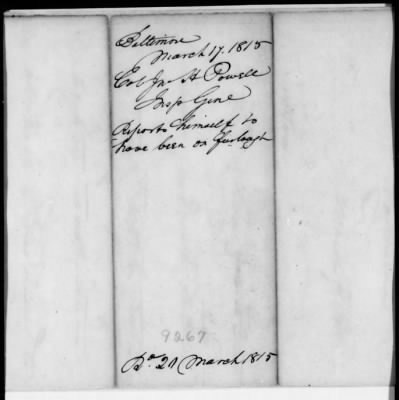 Baltimore
March 17. 1815
Col Jn. H Powell
Insp Genl
Reports himself to
have been on furlough
9267
March 1815